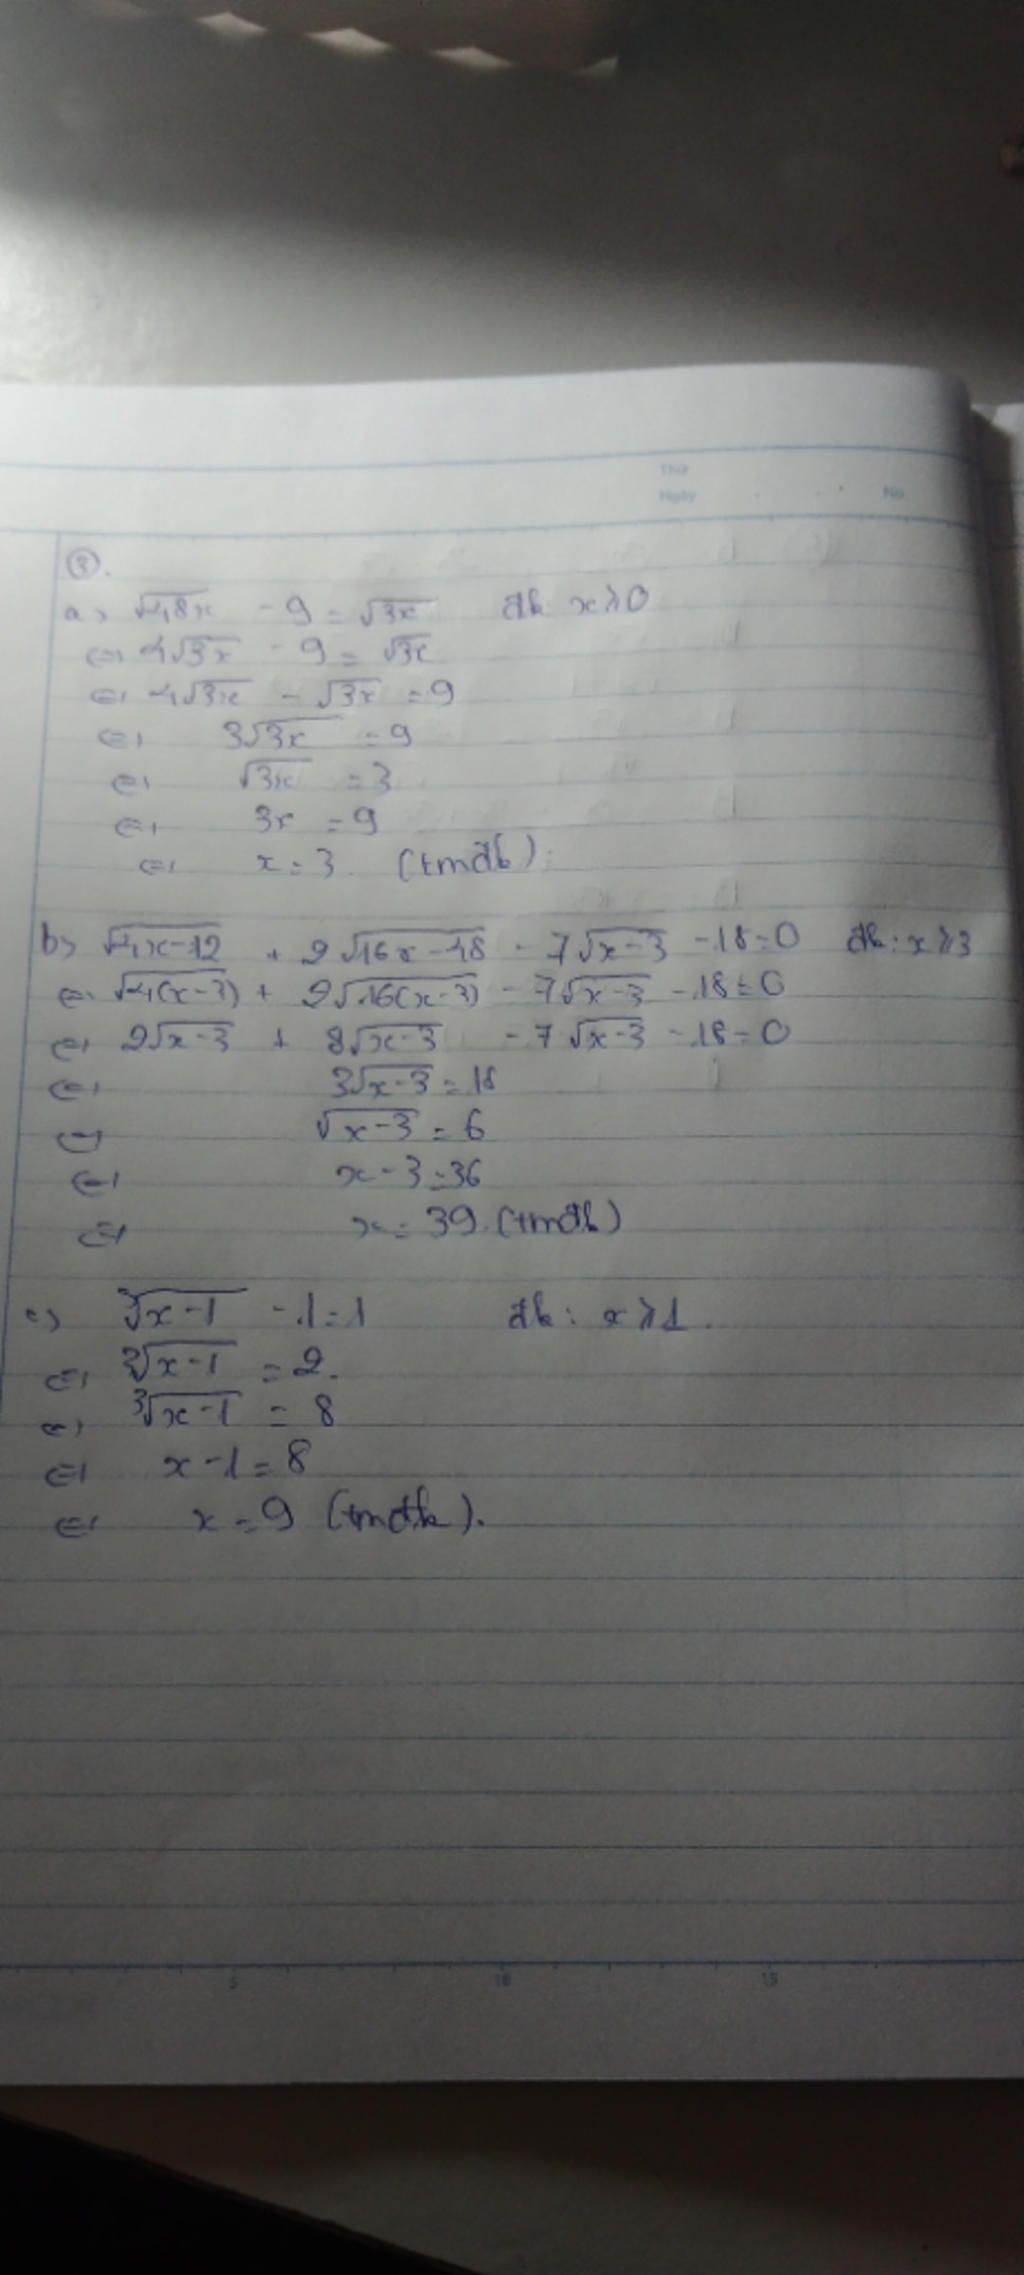 Thứ
Ngày No
③.
a) √48x - 9 = √3x đk x ≥ 0
<=> 4√3x - 9 = √3x
<=> 4√3x - √3x = 9
<=> 3√3x = 9
<=> √3x = 3
<=> 3x = 9
<=> x = 3 (tmđk).
b) √4x-12 + 2√16x-48 - 7√x-3 - 18 = 0 đk: x ≥ 3
<=> √4(x-3) + 2√16(x-3) - 7√x-3 - 18 = 0
<=> 2√x-3 + 8√x-3 - 7√x-3 - 18 = 0
<=> 3√x-3 = 18
<=> √x-3 = 6
<=> x-3 = 36
<=> x = 39. (tmđk)
c) ∛x-1 - 1 = 1 đk: x ≥ 1.
<=> ∛x-1 = 2.
<=> ∛x-1 = 8
<=> x-1 = 8
<=> x = 9 (tmđk).
5 10 15